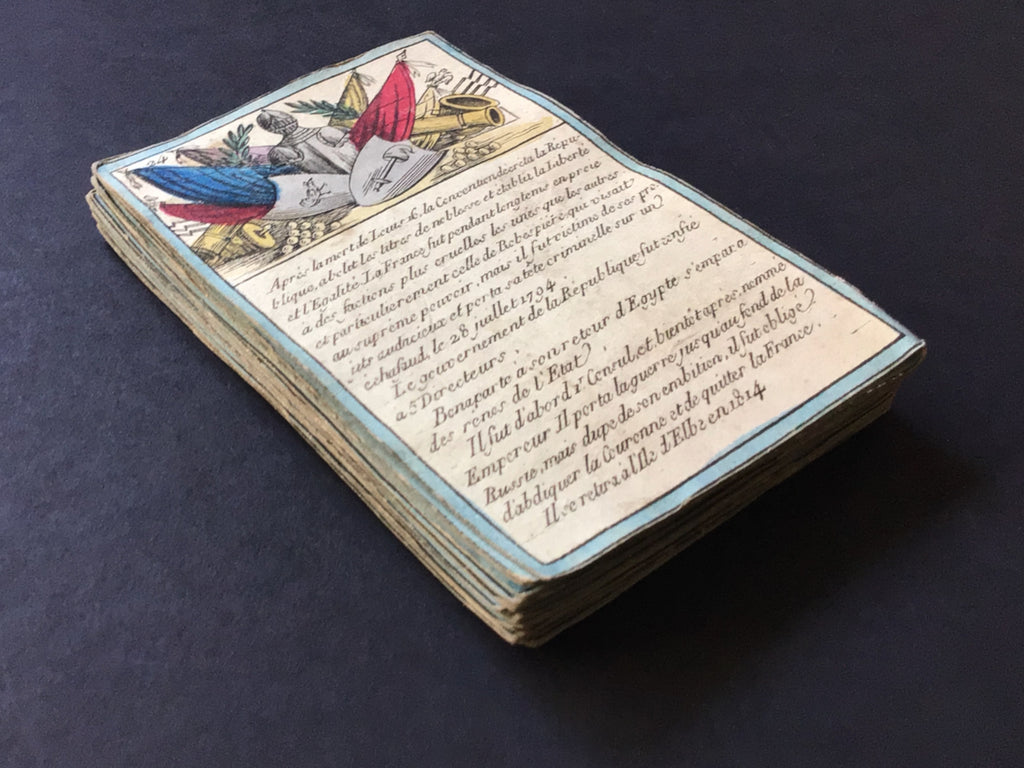 24
Après la mort de Louis 16, la Convention décréta la Répu
blique, abolit les titres de noblesse et établit la Liberté
et l'Egalité. La France fut pendant longtems en proie
à des factions plus cruelles les unes que les autres
et particulièrement celle de Robespière qui visait
au suprême pouvoir, mais il fut victime de ses pro
jets audacieux et porta sa tête criminelle sur un
échafaud, le 28 juillet 1794
Le gouvernement de la République fut confié
a 5 Directeurs.
Bonaparte a son retour d'Egypte s'empara
des rênes de l'Etat
Il fut d'abord 1er Consul, et bientôt après, nommé
Empereur Il porta la guerre jusqu'au fond de la
Russie, mais dupe de son embition, il fut obligé
d'abdiquer la Couronne et de quitter la France.
Il se retira à l'Ile d'Elbe en 1814